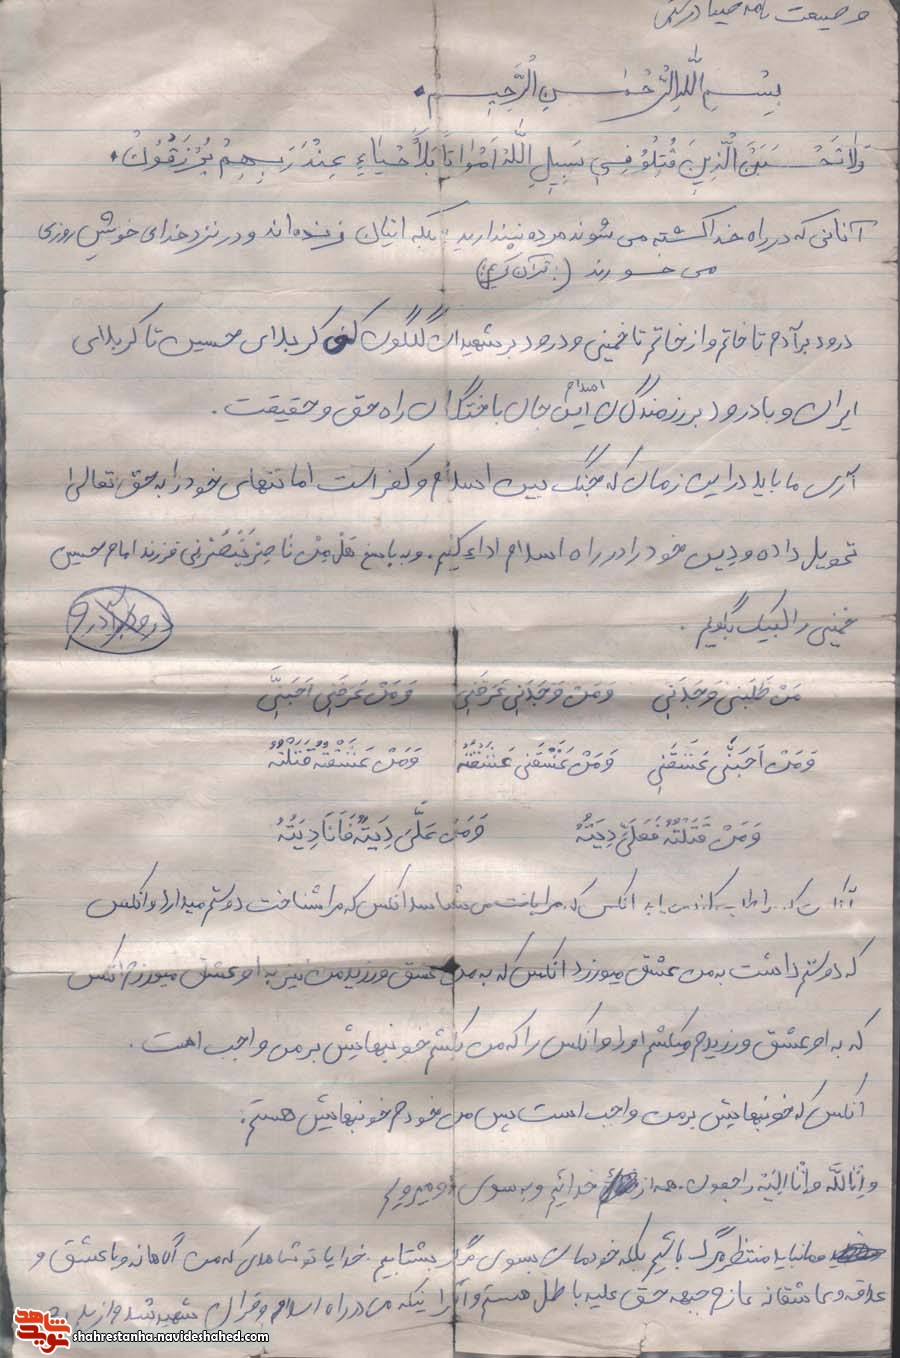 وصیت نامه
بِسْمِ اللّهِ الرَّحْمنِ الرَّحیمِ
وَلا تَحْسَبَنَّ الَّذِینَ قُتِلُوُ فِی سَبِیلِ اللّهِ اَمْواتاً بَلْ اَحْیاءِ عِنْدَ رَبِهِمْ یُرْزَقُونْ.
آنانی که در راه خدا کشته می شوند مرده نپندارید بلکه اینان زنده اند و در نزد خدای خویش روزی
می خورند (قرآن کریم)
درود بر آدم تا خاتم و از خاتم تا خمینی و درود بر شهیدان گلگون کفن کربلای حسین تا کربلای
ایران و با درود بر رزمندگان این جان باختگان راه حق و حقیقت.
آری ما باید در این زمان که جنگ بین اسلام و کفر است امانتهای خود را به حق تعالی
تحویل داده و دین خود را در راه اسلام اداء کنیم. و به پاسخ هَلْ مِنْ ناصِرٍ یَنْصُرْنی فرزند امام حسین
خمینی را لبیک بگویم.
مَنْ طَلَبَنی وَجَدَنی وَمَنْ وَجَدَنی عَرَفَنی وَمَنْ عَرَفَنی اَحَبَنَّی
وَمَنْ اَحَبَنَّی عَشَقَنی وَمَنْ عَشَقَنی عَشَقْتُهُ وَمَنْ عَشَقْتُهُ قَتَلْتُهُ
وَمَنْ قَتَلْتُهُ فَعَلَیَّ دِیَتُهُ وَمَنْ عَلَّیَ دِیَتُهُ فَاَنَا دِیَتُهُ
آنکس که مرا طلب کند می یابد آنکس که مرا یافت می شناسد آنکس که مرا شناخت دوستم میدارد و آنکس
که دوستم داشت به من عشق میورزد آنکس که به من عشق ورزید من نیز به او عشق میورزم آنکس
که به او عشق ورزیدم میکشم او را و آنکس را که من بکشم خونبهایش بر من واجب است.
آنکس که خونبهایش بر من واجب است پس من خودم خونبهایش هستم.
و اِنّاللّه و اِنّا الَیْهِ راجعون. همه از خدائیم و به سوی او میرویم
و ما نباید منتظر مرگ باشیم بلکه خودمان بسوی مرگ بشتابیم. خدایا تو شاهدی که من آگاهانه و با عشق و
علاقه و عاشقانه عازم جبهه حق علیه باطل هستم و از اینکه من در راه اسلام و قرآن شهید شدم
نوید شاهد
shahrestanha.navideshahed.com